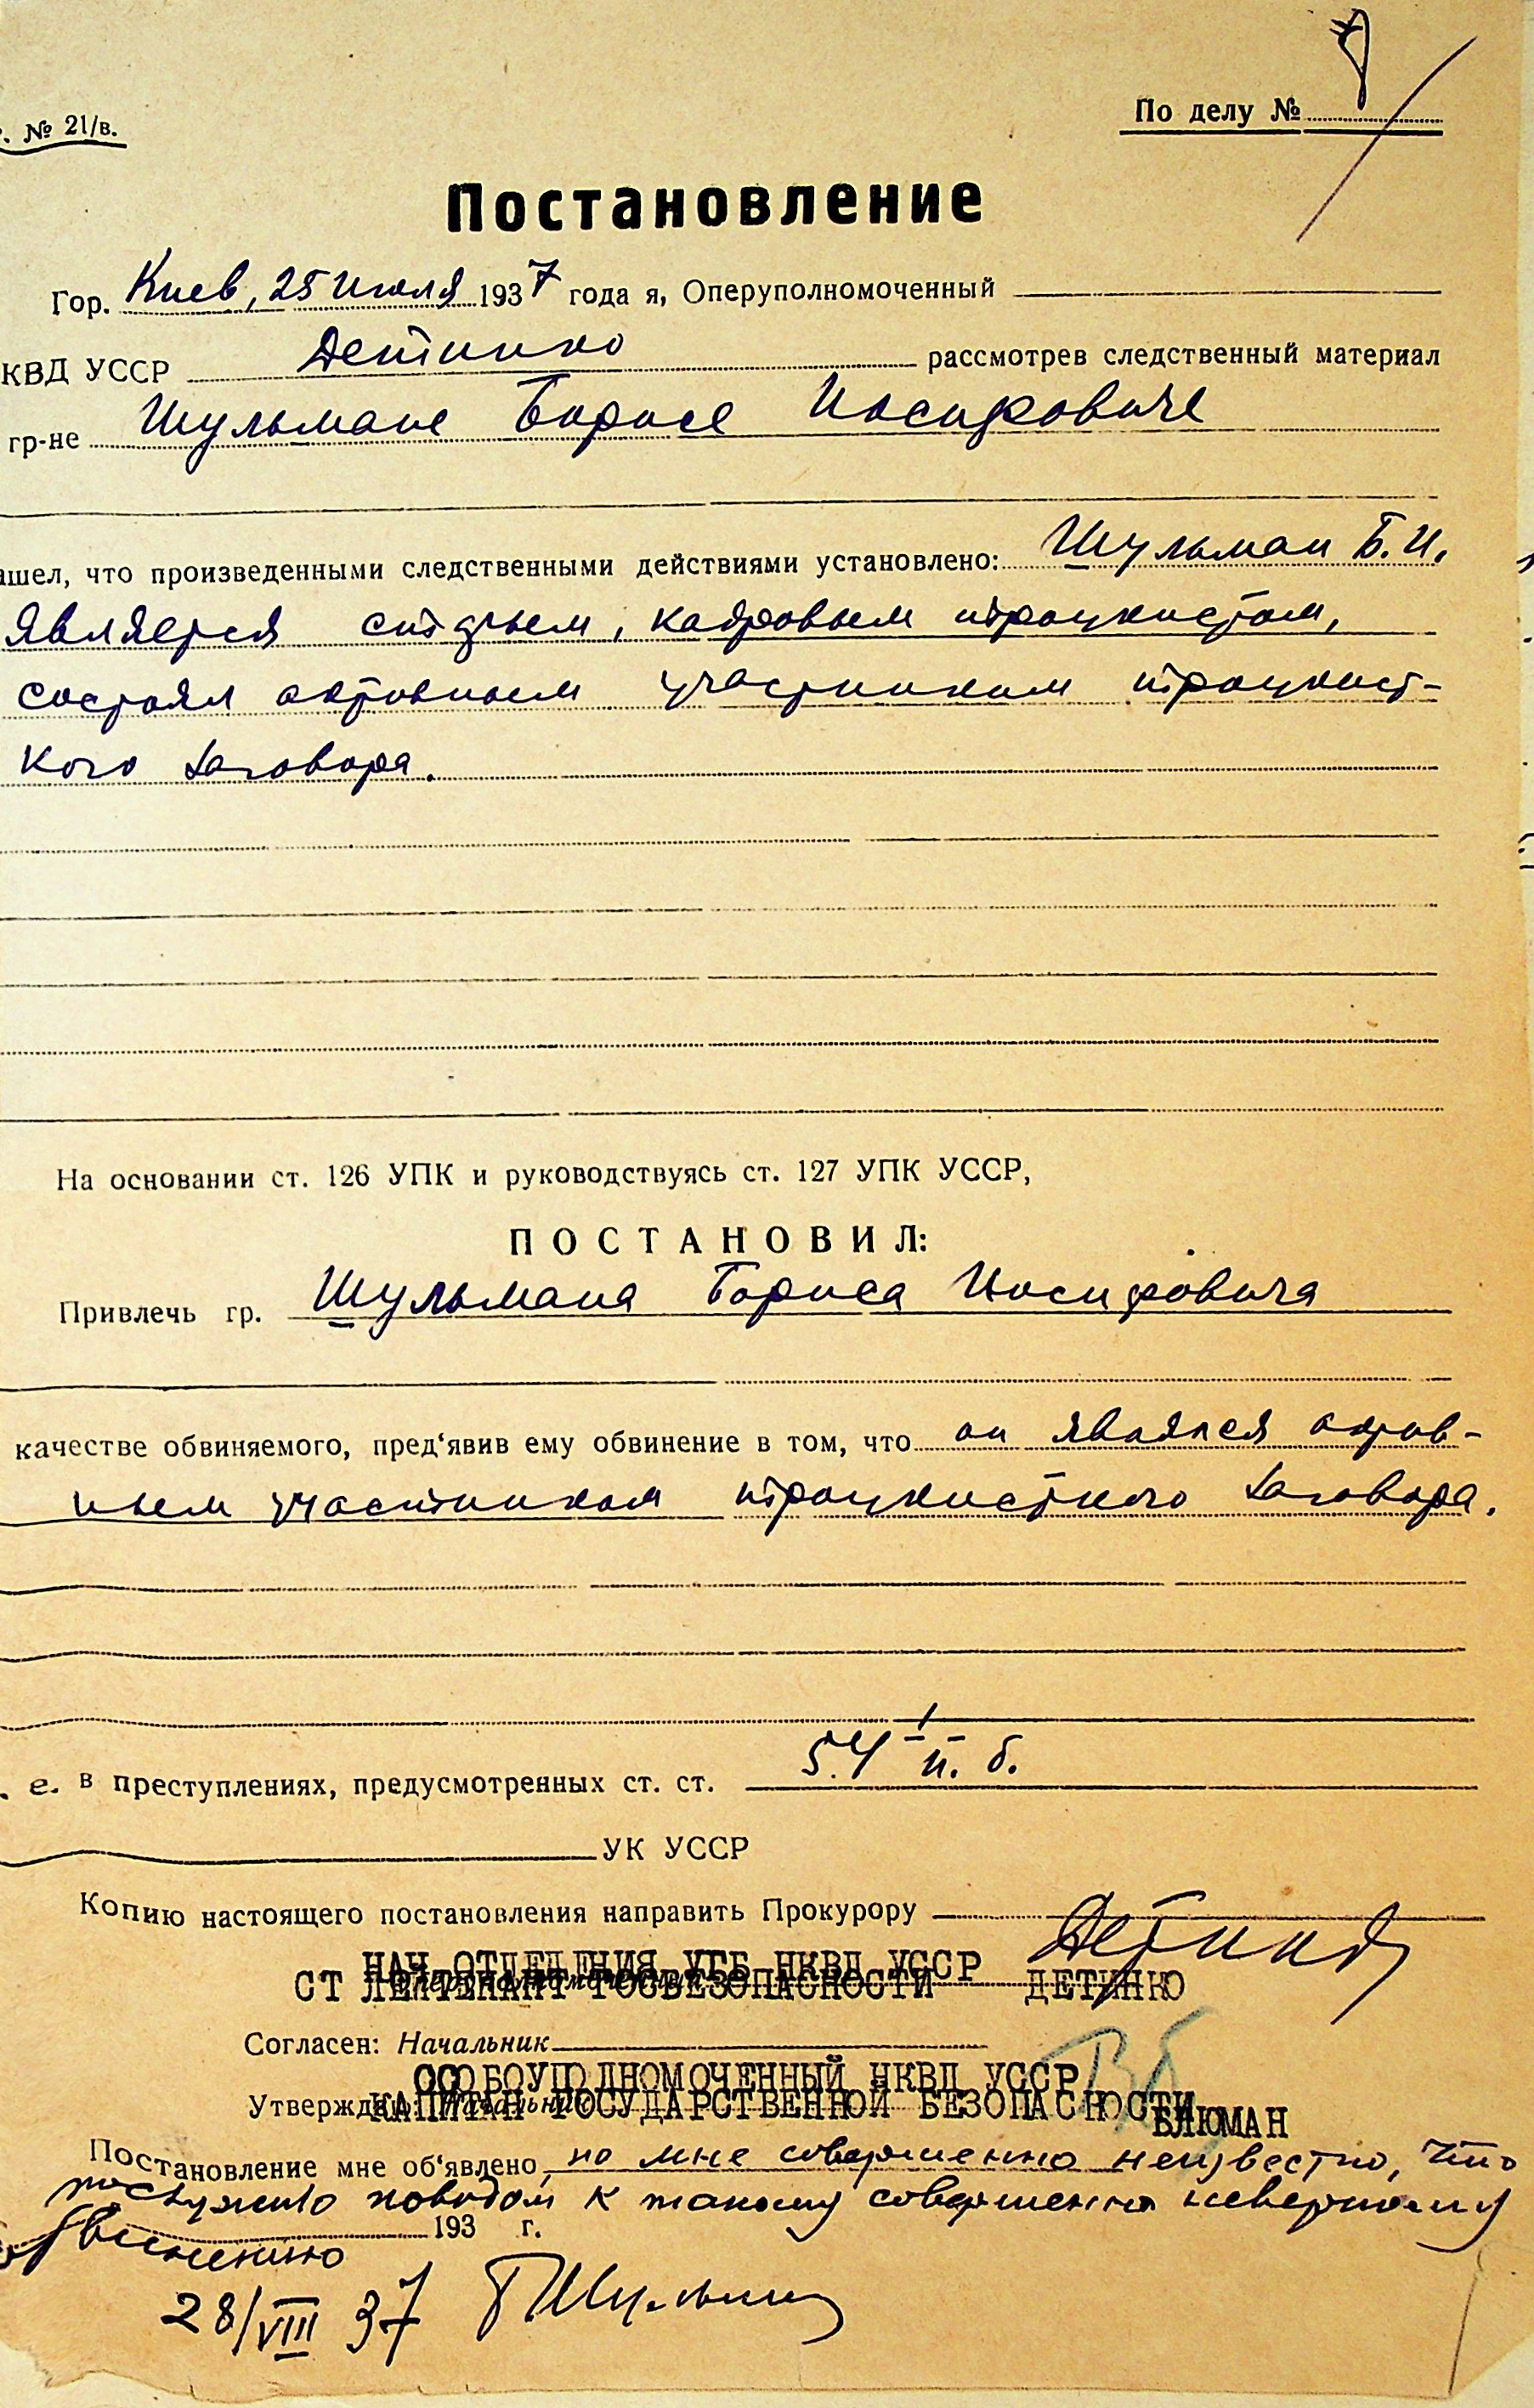 По делу №
. № 21/в.
Постановление
Гор. Киев, 25 июля 1937 года я, Оперуполномоченный
КВД УССР Детинко рассмотрев следственный материал
гр-не Шульмане Борисе Иосифовиче
ашел, что произведенными следственными действиями установлено: Шульман Б.И.
является кадровым троцкистом,
состоял активным участником троцкист-
кого заговора.
На основании ст. 126 УПК и руководствуясь ст. 127 УПК УССР,
ПОСТАНОВИЛ:
Привлечь гр. Шульмана Бориса Иосифовича
качестве обвиняемого, пред'явив ему обвинение в том, что он являлся актив-
ным участником троцкисткого заговора.
. е. в преступлениях, предусмотренных ст. ст. 54-1 п. б.
УК УССР
Копию настоящего постановления направить Прокурору
НАЧ ОТДЕЛЕНИЯ УГБ НКВД УССР
СТ ЛЕЙТЕНАНТ ГОСБЕЗОПАСНОСТИ ДЕТИНКО
Согласен: Начальник
ОСОБОУПОЛНОМОЧЕННЫЙ НКВД УССР
Утверждаю: Начальник
КАПИТАН ГОСУДАРСТВЕННОЙ БЕЗОПАСНОСТИ
БЛЮМАН
Постановление мне об'явлено, но мне совершенно неизвестно, что
послужило поводом к такому совершенно неверному
обвинению 193 г.
28/VIII 37 БШульман